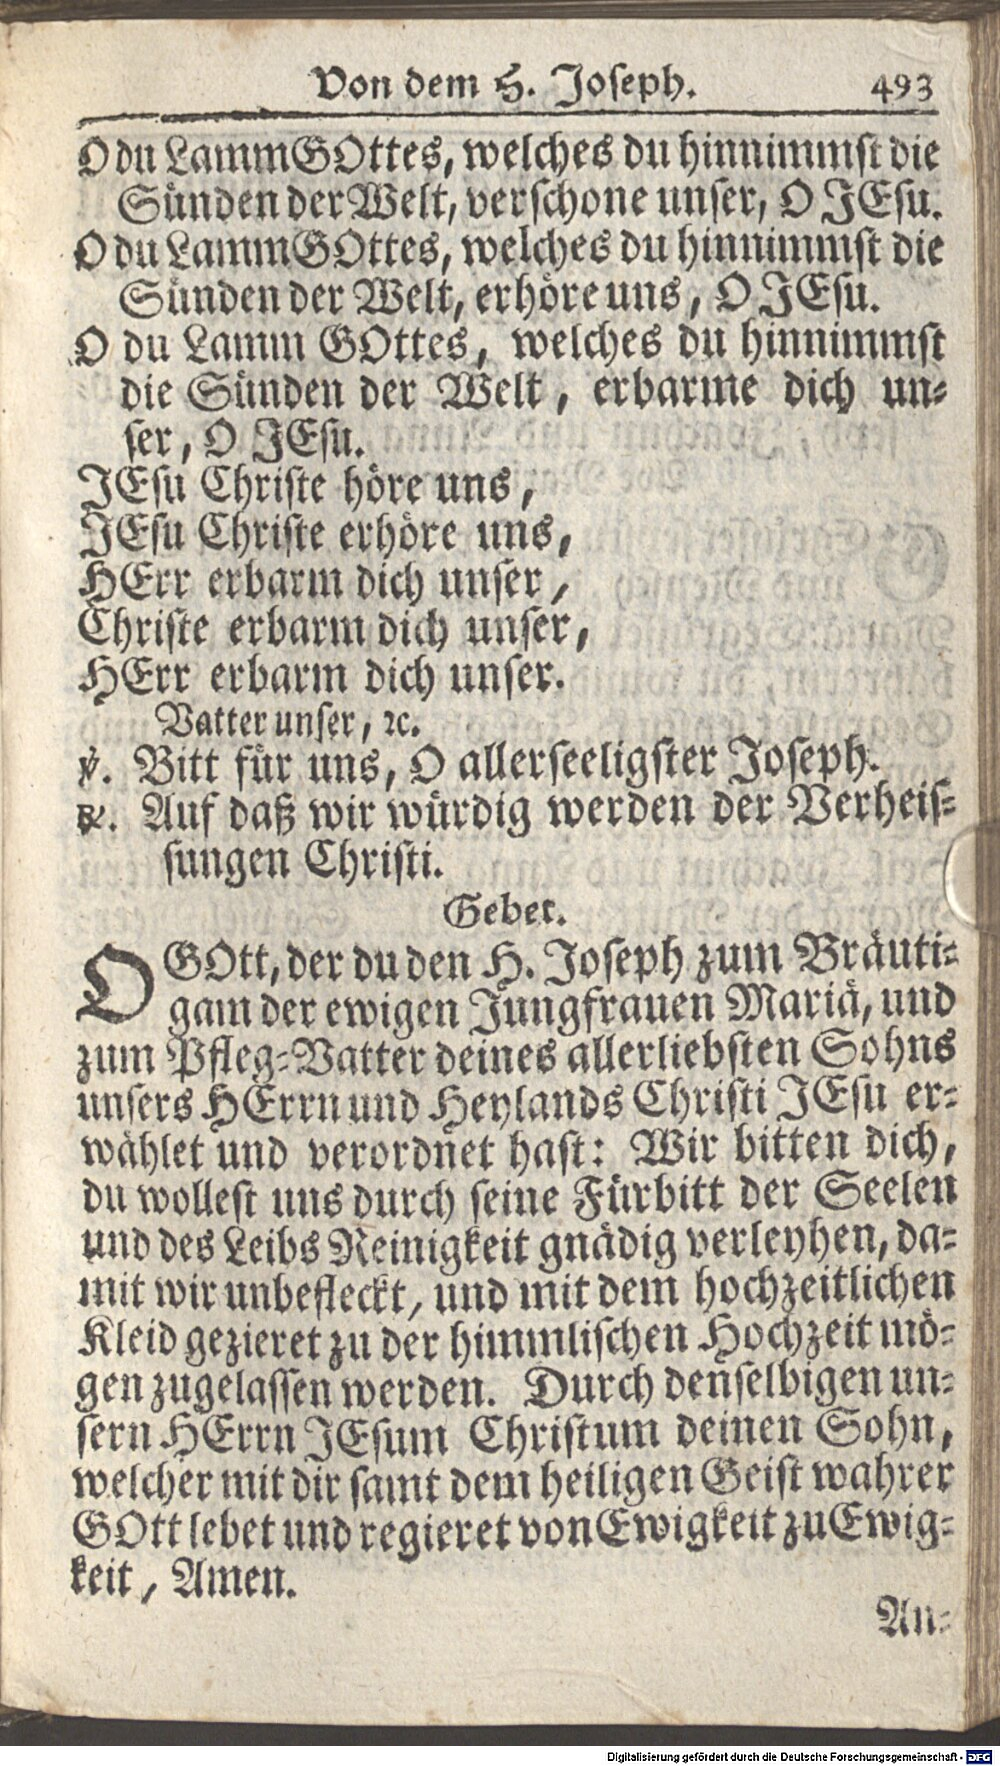 Von dem H. Joseph. 493
O du Lamm GOttes, welches du hinnimmst die
Sünden der Welt, verschone unser, O JEsu.
O du Lamm GOttes, welches du hinnimmst die
Sünden der Welt, erhöre uns, O JEsu.
O du Lamm GOttes, welches du hinnimmst
die Sünden der Welt, erbarme dich un-
ser, O JEsu.
JEsu Christe höre uns,
JEsu Christe erhöre uns,
HErr erbarm dich unser,
Christe erbarm dich unser,
HErr erbarm dich unser.
Vatter unser, ꝛc.
℣. Bitt für uns, O allerseeligster Joseph.
℟. Auf daß wir würdig werden der Verheis-
sungen Christi.
Gebet.
O GOtt, der du den H. Joseph zum Bräuti-
gam der ewigen Jungfrauen Mariä, und
zum Pfleg-Vatter deines allerliebsten Sohns
unsers HErrn und Heylands Christi JEsu er-
wählet und verordnet hast: Wir bitten dich,
du wollest uns durch seine Fürbitt der Seelen
und des Leibs Reinigkeit gnädig verleyhen, da-
mit wir unbefleckt, und mit dem hochzeitlichen
Kleid gezieret zu der himmlischen Hochzeit mö-
gen zugelassen werden. Durch denselbigen un-
sern HErrn JEsum Christum deinen Sohn,
welcher mit dir samt dem heiligen Geist wahrer
GOtt lebet und regieret von Ewigkeit zu Ewig-
keit, Amen.
An-
Digitalisierung gefördert durch die Deutsche Forschungsgemeinschaft - DFG